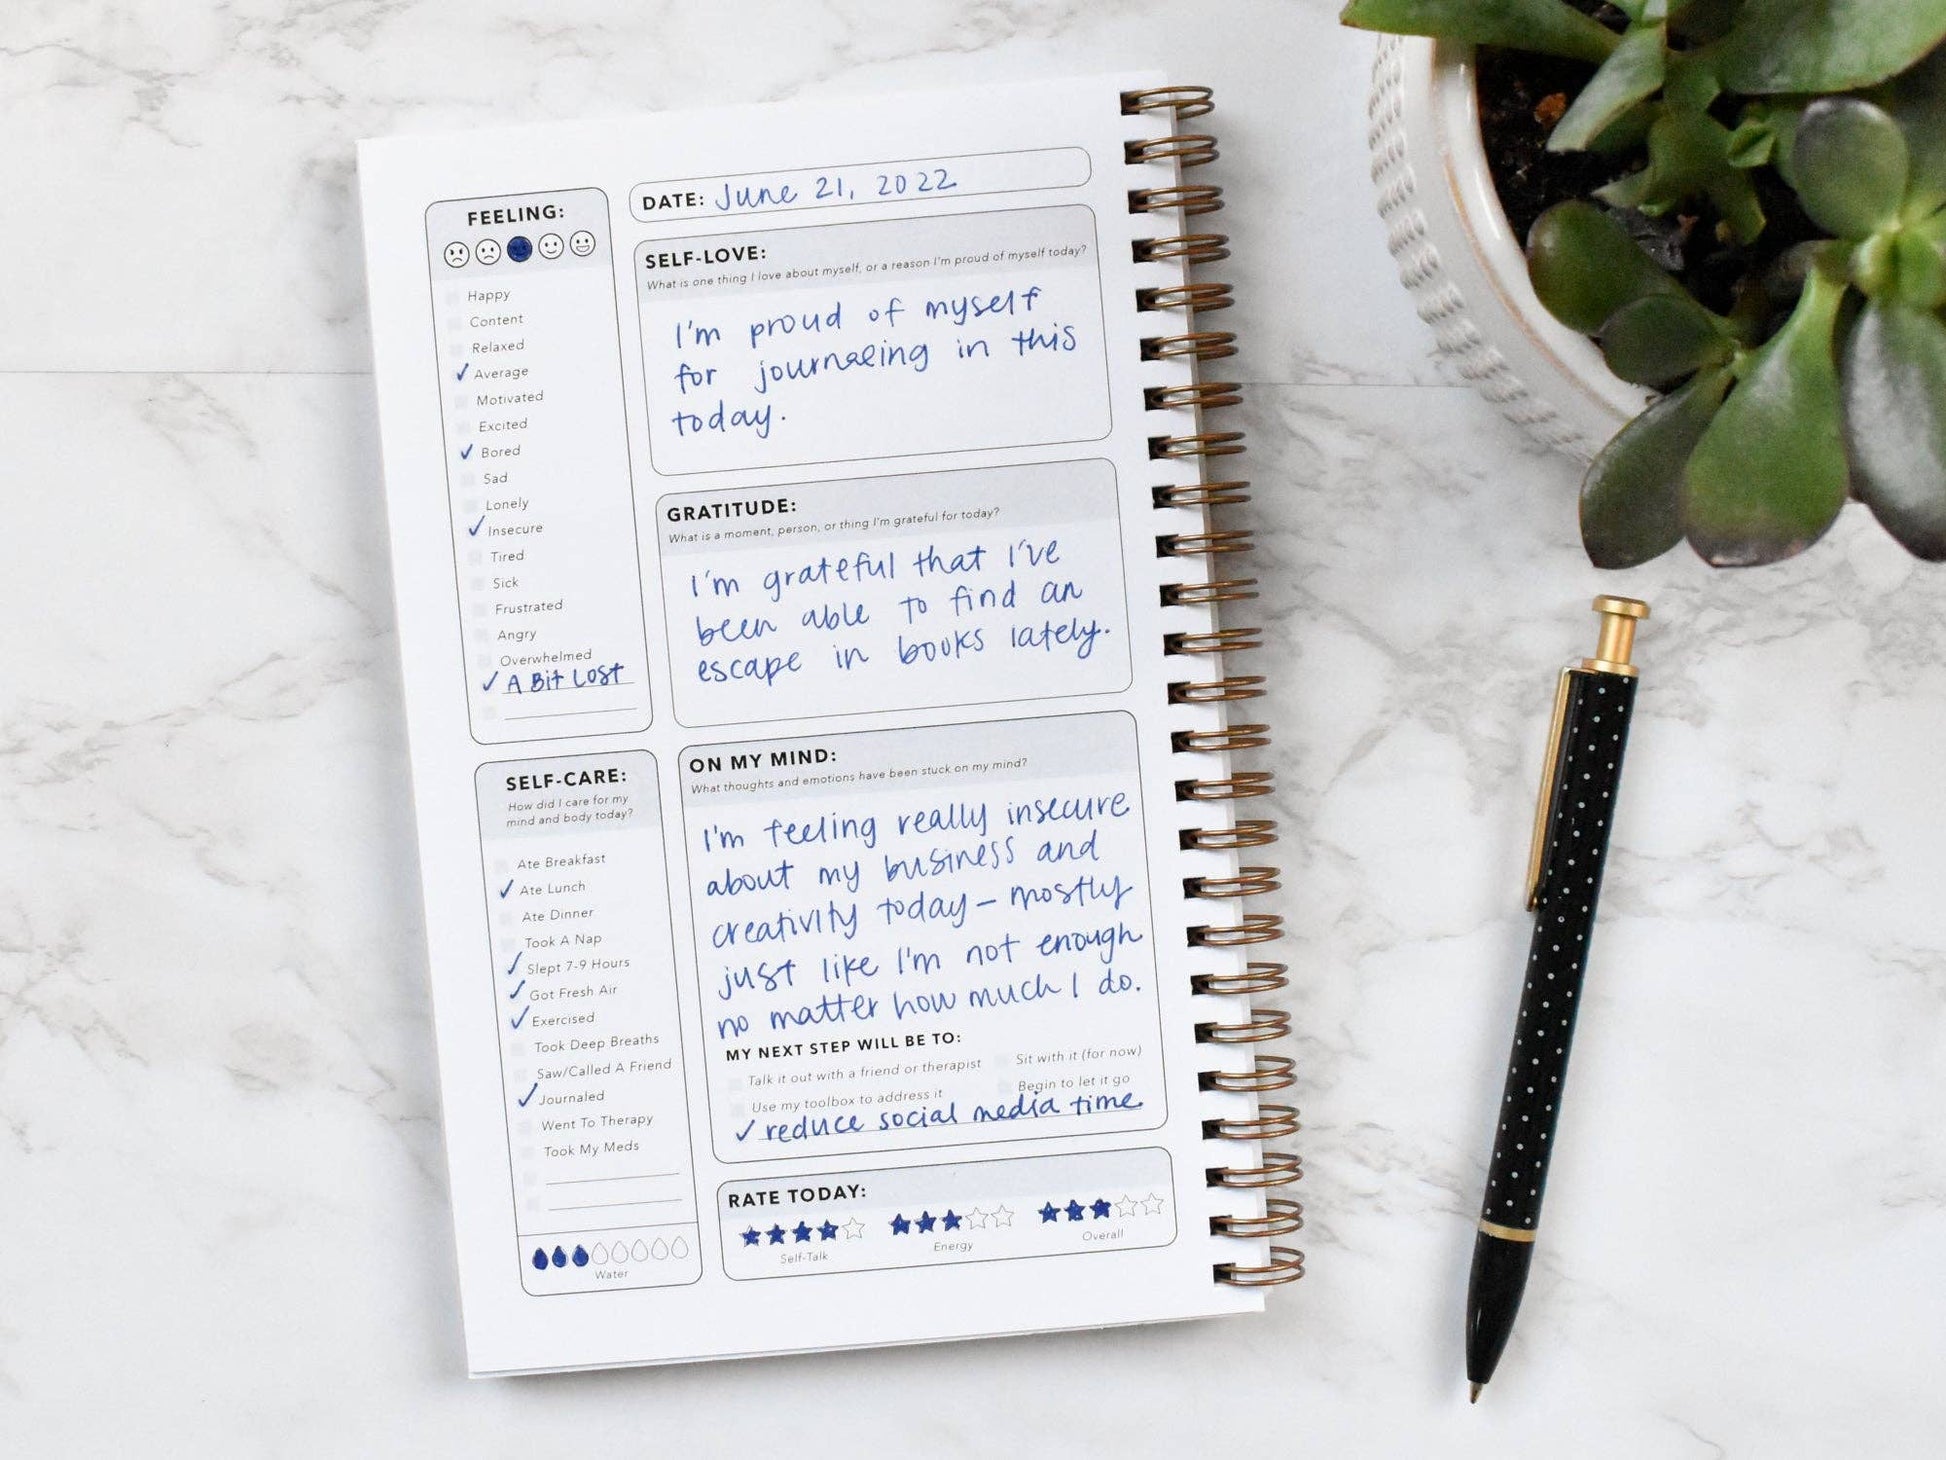 FEELING:
Happy
Content
Relaxed
✓ Average
Motivated
Excited
✓ Bored
Sad
Lonely
✓ Insecure
Tired
Sick
Frustrated
Angry
Overwhelmed
✓ A Bit Lost
SELF-CARE:
How did I care for my
mind and body today?
Ate Breakfast
✓ Ate Lunch
Ate Dinner
Took A Nap
✓ Slept 7-9 Hours
✓ Got Fresh Air
✓ Exercised
Took Deep Breaths
Saw/Called A Friend
✓ Journaled
Went To Therapy
Took My Meds
Water
DATE: June 21, 2022
SELF-LOVE:
What is one thing I love about myself, or a reason I'm proud of myself today?
I'm proud of myself
for journaling in this
today.
GRATITUDE:
What is a moment, person, or thing I'm grateful for today?
I'm grateful that I've
been able to find an
escape in books lately.
ON MY MIND:
What thoughts and emotions have been stuck on my mind?
I'm feeling really insecure
about my business and
creativity today - mostly
just like I'm not enough
no matter how much I do.
MY NEXT STEP WILL BE TO:
Talk it out with a friend or therapist
Sit with it (for now)
Use my toolbox to address it
Begin to let it go
✓ reduce social media time.
RATE TODAY:
Self-Talk
Energy
Overall